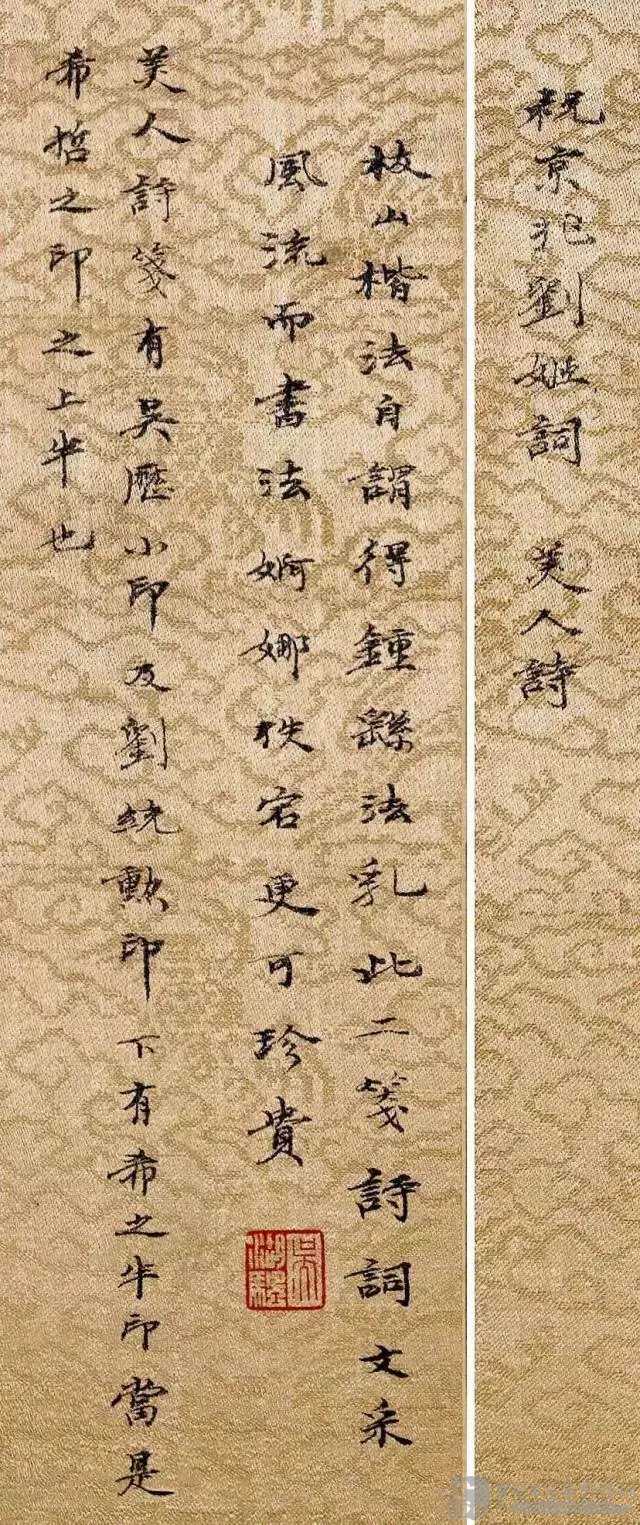 祝京兆劉姬詞 美人詩
枝山楷法自謂得鍾繇法乳此二箋詩詞文采
風流而書法婀娜挾宕更可珍貴
美人詩箋有吳歷小印及劉統勲印 下有希之半印當是
希哲之印之上半也